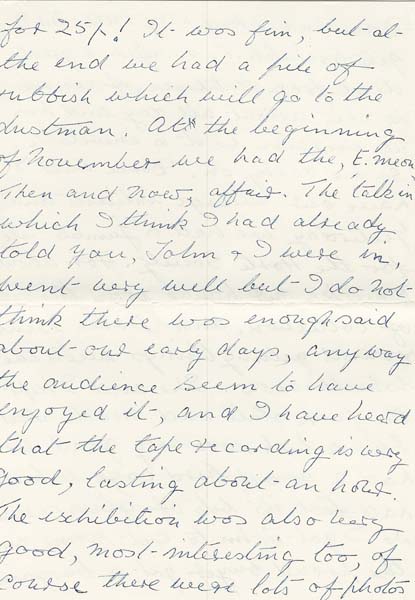 for 25p! It was fun, but at
the end we had a pile of
rubbish which will go to the
dustman. At the beginning
of November we had the, E. meon
Then and Now, affair. The talk in
which I think I had already
told you, John + I were in,
went very well but I do not
think there was enough said
about our early days, anyway
the audience seem to have
enjoyed it, and I have heard
that the tape recording is very
good, lasting about an hour.
The exhibition was also very
good, most interesting too, of
course there were lots of photos